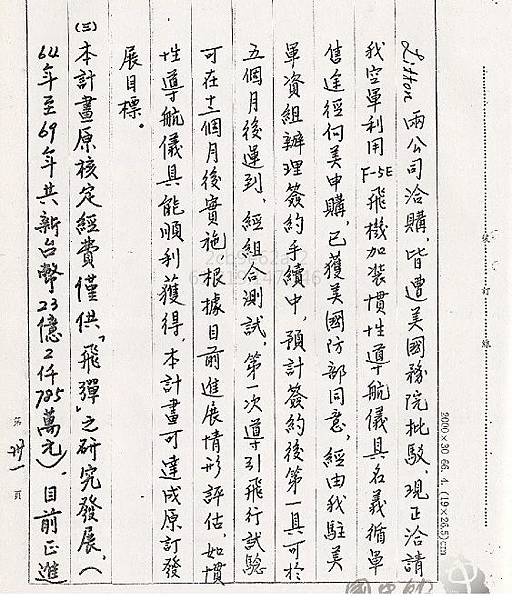 Litton 兩公司洽購，皆遭美國務院批駁，現正洽請
我空軍利用F-5E飛機加裝慣性導航儀具名義循軍
售途徑向美申購，已獲美國防部同意，經由我駐美
軍資組辦理簽約手續中，預計簽約後第一具可於
五個月後運到，經組合測試，第一次導引飛行試驗
可在十二個月後實施，根據目前進展情形評估，如慣
性導航儀具能順利獲得，本計畫可達成原訂發
展目標。
(三)本計畫原核定經費僅供「飛彈」之研究發展，（
64年至69年共新台幣23億2仟785萬元）．目前正進
裝 訂 線
2000×30 66. 4. (19×26.5)cm
第 卅一 頁